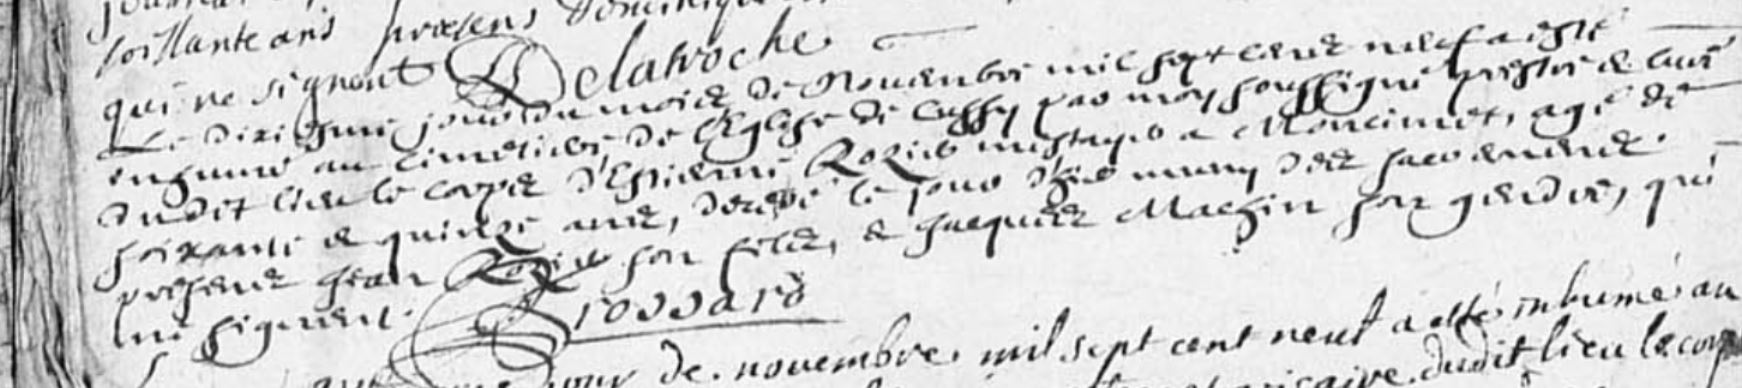 soissante ans presens Dominique
qui ne signent Delaroche
Le dixiesme jour du mois de Novembre mil sept cent neuf a esté
enhumé au cimetiere de l'Eglise de Cussy par moy soussigné prestre & curé
dudit lieu le corps d'Estienne Rozier mestayer a Montimet, agé de
soixante & quinze ans, decedé le jour d'hier muny des sacremens.
presens Jean Rozier son filz, & Jacques Machin son gendre, qui
ne signent. Brossard
jour de novembre mil sept cent neuf a esté inhumé au
dudit lieu le corps